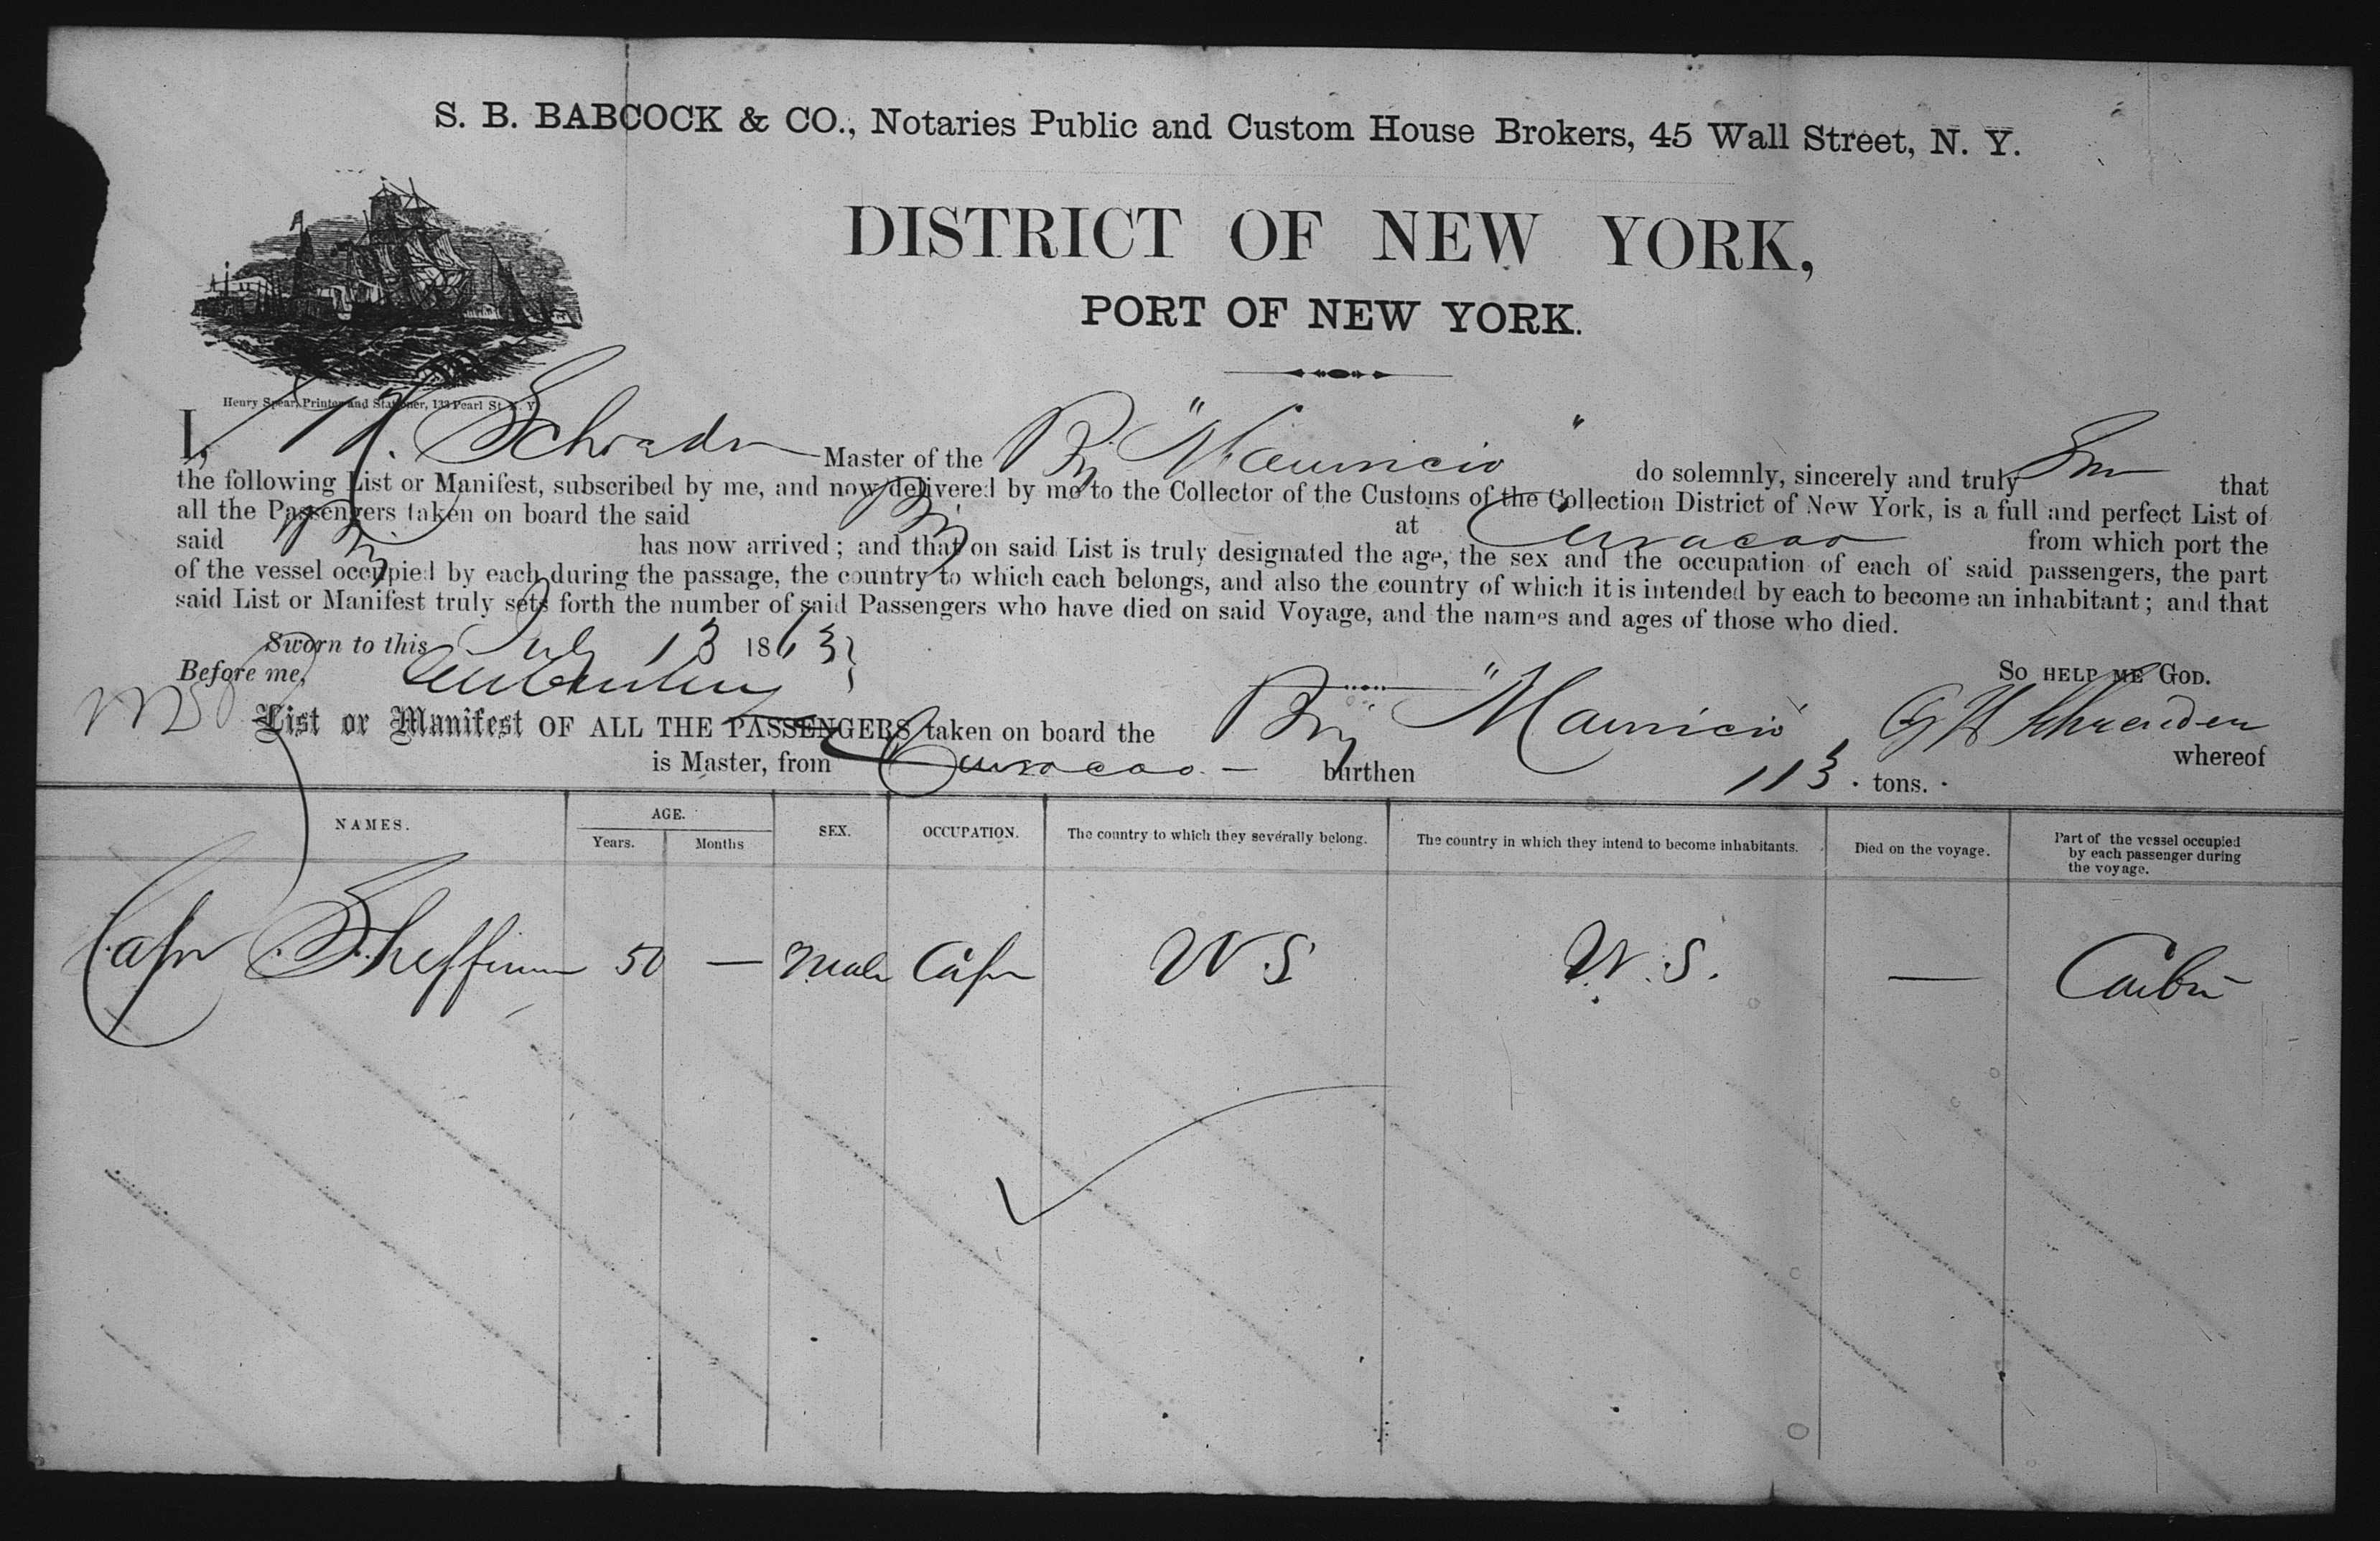 S. B. BABCOCK & CO., Notaries Public and Custom House Brokers, 45 Wall Street, N. Y.
DISTRICT OF NEW YORK,
PORT OF NEW YORK.
Henry Spear, Printer and Stationer, 133 Pearl St. N. Y.
I, Schrader Master of the Brig "Mauricio" do solemnly, sincerely and truly Swear that
the following List or Manifest, subscribed by me, and now delivered by me to the Collector of the Customs of the Collection District of New York, is a full and perfect List of
all the Passengers taken on board the said Brig at Curacao from which port the
said Brig has now arrived; and that on said List is truly designated the age, the sex and the occupation of each of said passengers, the part
of the vessel occupied by each during the passage, the country to which each belongs, and also the country of which it is intended by each to become an inhabitant; and that
said List or Manifest truly sets forth the number of said Passengers who have died on said Voyage, and the names and ages of those who died.
Sworn to this July 13 1863
Before me, So HELP ME GOD.
List or Manifest OF ALL THE PASSENGERS taken on board the Brig "Mauricio" G H Schrader whereof
is Master, from Curacao - burthen 113 tons.
NAMES. AGE. Years. Months SEX. OCCUPATION. The country to which they severally belong. The country in which they intend to become inhabitants. Died on the voyage. Part of the vessel occupied by each passenger during the voyage.
Capn 50 — Male Capn U.S. U.S. — Cabin